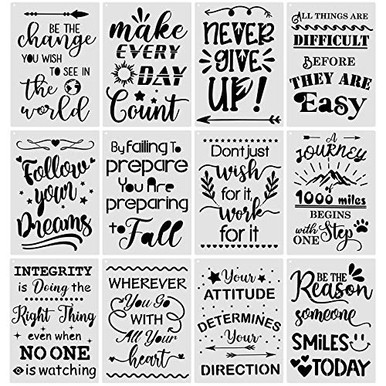 BE THE
change
YOU WISH
TO SEE IN
the
world
make
EVERY
DAY
Count
NEVER
GIVE
UP!
ALL THINGS ARE
DIFFICULT
BEFORE
THEY ARE
Easy
Follow
your
Dreams
By Failing To
prepare
You Are
preparing
to
Fall
Dont just
wish
for it,
work
for it
A
JOURNEY
of
1000 miles
BEGINS
WITH
ONE Step
INTEGRITY
is Doing the
Right Thing
even when
NO ONE
is watching
WHEREVER
You Go
WITH
All Your
heart
Your
ATTITUDE
DETERMINES
Your
DIRECTION
BE THE
Reason
someone
SMILES
TODAY